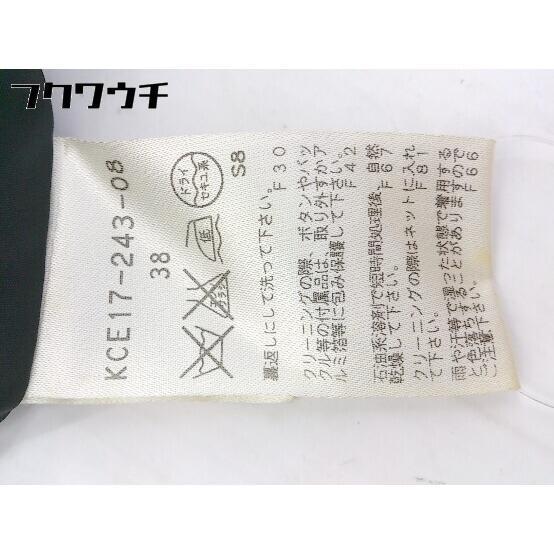 フクワウチ
KCE17-243-08
38
ドライ
セキユ系
低
エンソ
サラシ
S8
裏返しにして洗って下さい。
F30
クリーニングの際、ボタンやバッ
クル等の付属品は、取り外すかア
ルミ箔等に包み保護して下さい。
F42
石油系溶剤で短時間処理後、自然
乾燥して下さい。
F67
クリーニングの際はネットに入れ
て下さい。
F81
雨や汗等で湿った状態で着用する
と色落ちすることがありますので
ご注意下さい。
F66